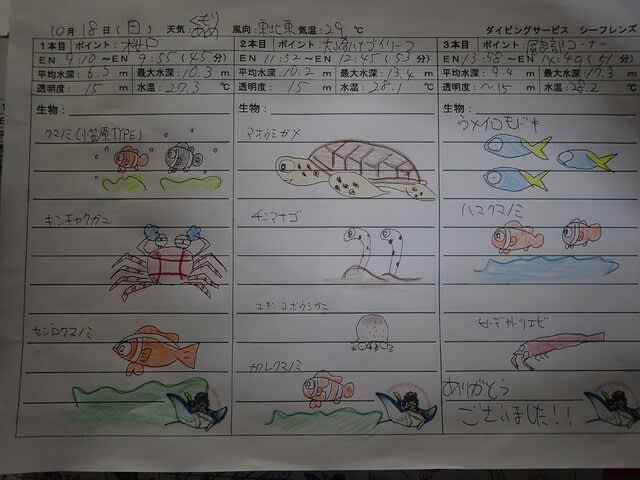 10月18日(日) 天気 くもり あめ 風向:東北東 気温:29℃ ダイビングサービス シーフレンズ
1本目 ポイント: 2本目 ポイント: 3本目 ポイント: コーナー
EN 9:10〜EN 9:55(45分) EN 11:52〜EN 12:45(53分) EN 13:58〜EN 14:49(51分)
平均水深:6.3m 最大水深:10.3m 平均水深:10.2m 最大水深:13.4m 平均水深:9.4m 最大水深:17.3m
透明度:15m 水温:27.3℃ 透明度:15m 水温:28.1℃ 透明度:〜15m 水温:28.2℃
生物:
クマノミ(小笠原TYPE)
キンチャクガニ
セジロクマノミ
生物:
アオウミガメ
チンアナゴ
カクレクマノミ
生物:
ウメイロモドキ
ハマクマノミ
ありがとう
ございました!!